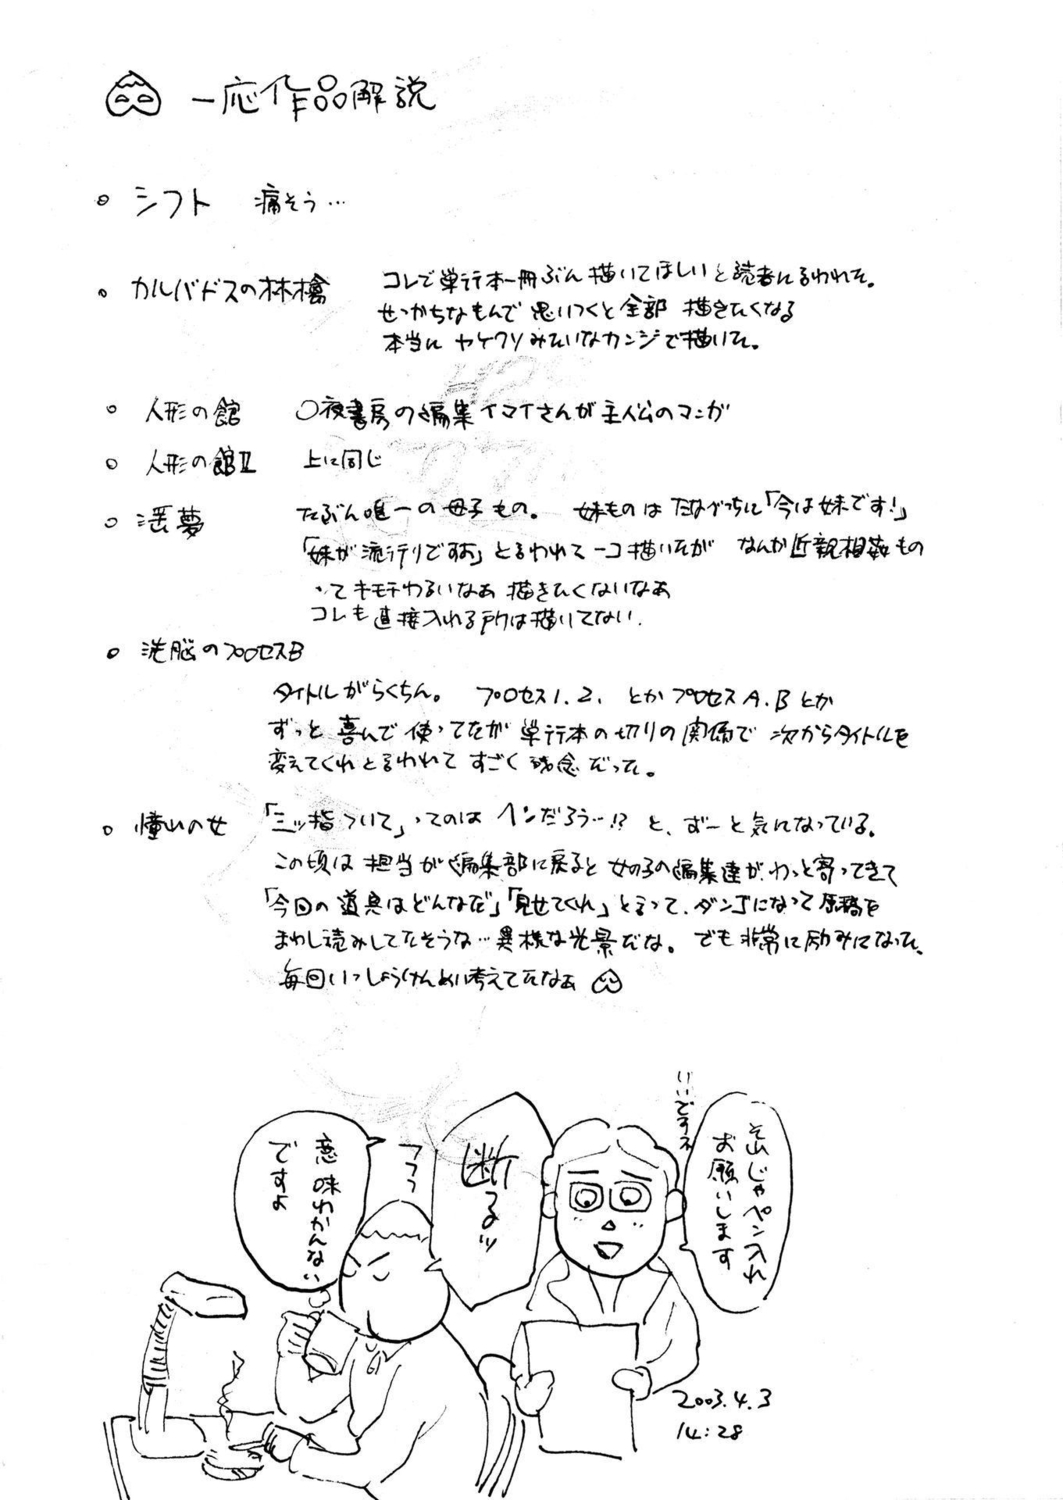 一応作品解説
シフト 痛そう…
カルバドスの林檎 コレで単行本一冊ぶん描いてほしいと読者に言われた。
せっかちなもんで思いつくと全部描きたくなる
本当に ヤケクソみたいなカンジで描いた。
人形の館 〇夜書房の編集イマイさんが主人公のマンガ
人形の館II 上に同じ
淫夢 たぶん唯一の母子もの。 妹ものは たなべっちに「今は妹です!」
「妹が流行りですよ」と言われて一コ描いたが なんか近親相姦もの
ってキモチわるいなぁ 描きたくないなぁ
コレも直接入れる所は描いてない.
洗脳のプロセスB
タイトルがらくちん。 プロセス1.2. とかプロセスA.Bとか
ずっと喜んで使ってたが単行本の切りの関係で次からタイトルを
変えてくれと言われて すごく残念だった。
憧れの女 「三ッ指ついて」ってのは ヘンだろう…!? と、ずーと気になっている。
この頃は担当が編集部に戻ると女の子の編集達がわっと寄ってきて
「今回の道具はどんなだ」「見せてくれ」と言って、ダンゴになって原稿を
まわし読みしてたそうな…異様な光景だな。でも非常に励みになった、
毎回いっしょうけんめい考えてたなぁ
いいですネ
それじゃペン入れ
お願いします
断るッ
フフフ
意味わかんない
ですよ
2003.4.3
14:28